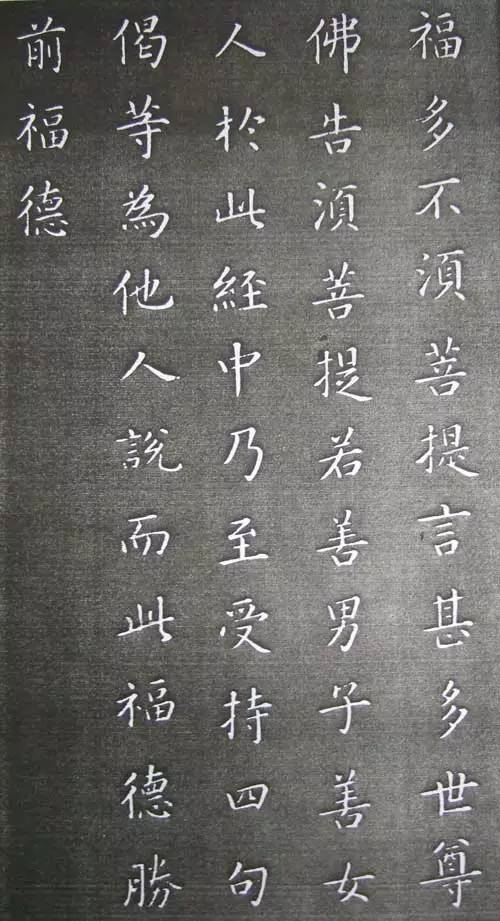 福多不須菩提言甚多世尊
佛告須菩提若善男子善女
人於此經中乃至受持四句
偈等為他人說而此福德勝
前福德